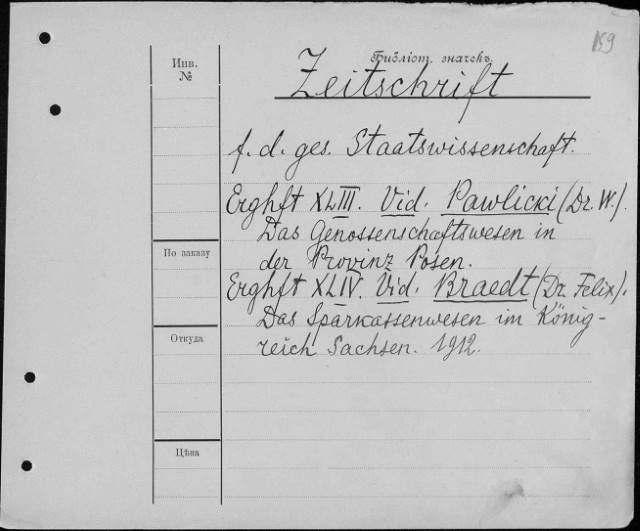 159
Инв.
№
Библіот. значекъ.
Zeitschrift
f. d. ges. Staatswissenschaft.
Erghft XLIII. Vid. Pawlicki (Dr. W.).
Das Genossenschaftswesen in
der Provinz Posen.
По заказу
Erghft XLIV. Vid. Braedt (Dr. Felix).
Das Sparkassenwesen im König-
reich Sachsen. 1912.
Откуда
Цѣна